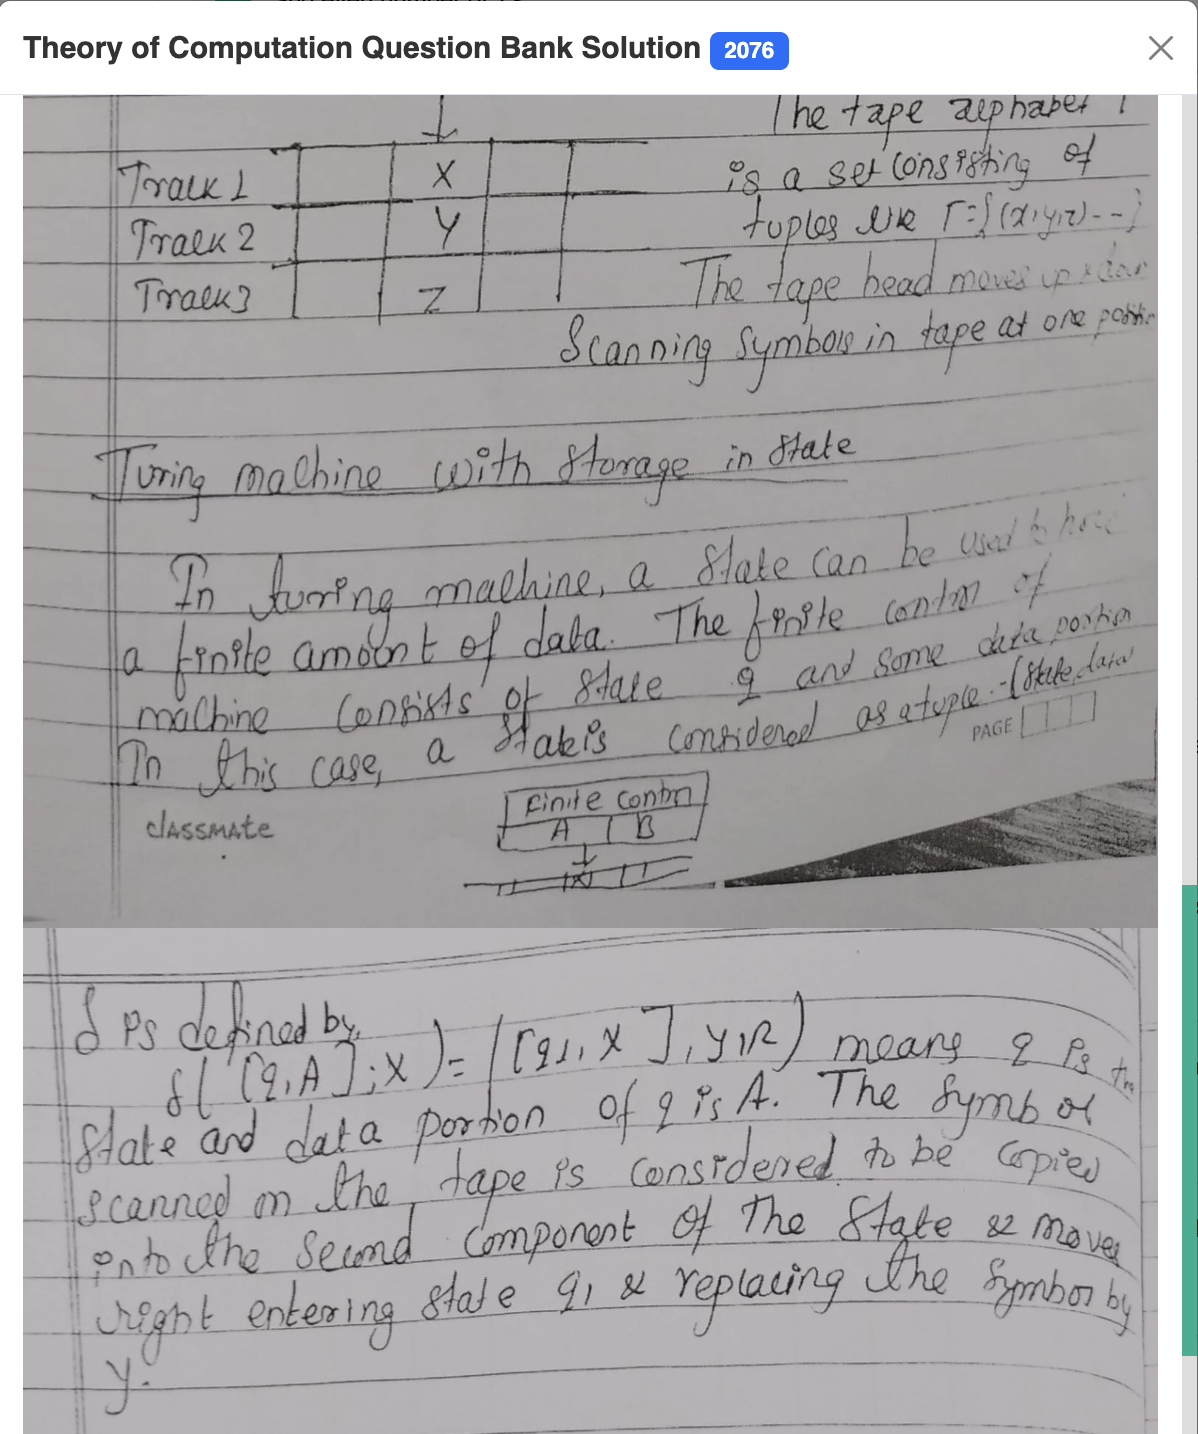 Theory of Computation Question Bank Solution 2076
The tape alphabet
is a set consisting of
tuples like Γ={(x,y,z)--}
The tape head moves up & down
Scanning symbols in tape at one
Track 1 X
Track 2 Y
Track 3 Z
Turing machine with storage in state
In turing machine, a state can be used to hold
a finite amount of data. The finite control of
machine consists of state q and some data portion
In this case, a state is considered as a tuple - (state, data)
PAGE
classmate
Finite Control
A B
X
δ is defined by,
δ([q,A],X) = ([q1, X], Y,R) means q is the
state and data portion of q is A. The symbol
scanned on the tape is considered to be copied
into the second component of the state & moves
right entering state q1 & replacing the symbol by
y.